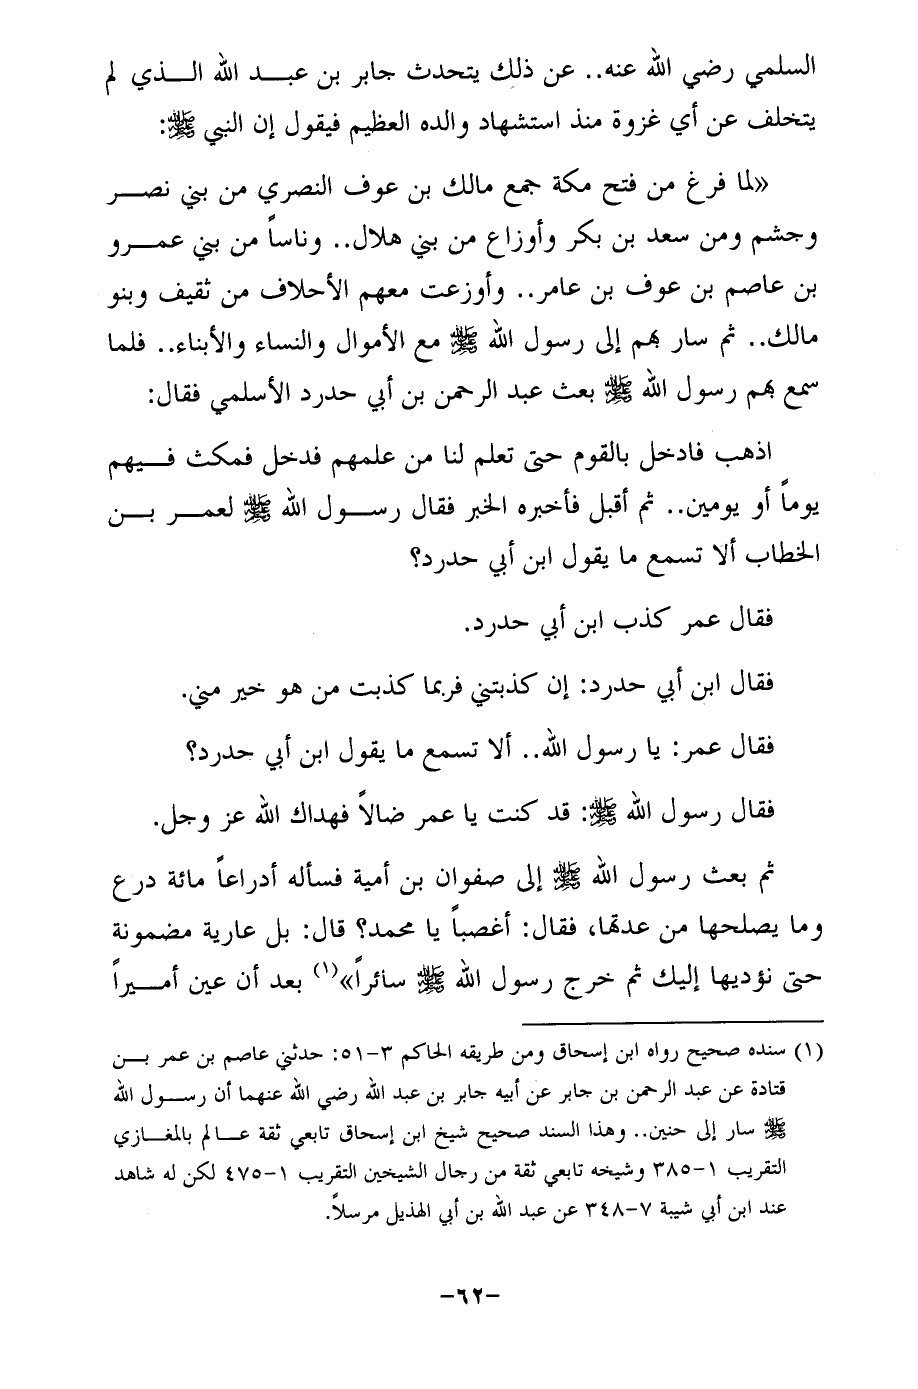 السلمي رضي الله عنه.. عن ذلك يتحدث جابر بن عبد الله الذي لم
يتخلف عن أي غزوة منذ استشهاد والده العظيم فيقول إن النبي ﷺ:
«لما فرغ من فتح مكة جمع مالك بن عوف النصري من بني نصر
وجشم ومن سعد بن بكر وأوزاع من بني هلال.. وناساً من بني عمرو
بن عاصم بن عوف بن عامر.. وأوزعت معهم الأحلاف من ثقيف وبنو
مالك.. ثم سار بهم إلى رسول الله ﷺ مع الأموال والنساء والأبناء.. فلما
سمع بهم رسول الله ﷺ بعث عبد الرحمن بن أبي حدرد الأسلمي فقال:
اذهب فادخل بالقوم حتى تعلم لنا من علمهم فدخل فمكث فيهم
يوماً أو يومين.. ثم أقبل فأخبره الخبر فقال رسول الله ﷺ لعمر بن
الخطاب ألا تسمع ما يقول ابن أبي حدرد؟
فقال عمر كذب ابن أبي حدرد.
فقال ابن أبي حدرد: إن كذبتني فربما كذبت من هو خير مني.
فقال عمر: يا رسول الله.. ألا تسمع ما يقول ابن أبي حدرد؟
فقال رسول الله ﷺ: قد كنت يا عمر ضالاً فهداك الله عز وجل.
ثم بعث رسول الله ﷺ إلى صفوان بن أمية فسأله أدراعاً مائة درع
وما يصلحها من عدتها، فقال: أغصباً يا محمد؟ قال: بل عارية مضمونة
حتى نؤديها إليك ثم خرج رسول الله ﷺ سائراً»(١) بعد أن عين أميراً
(١) سنده صحيح رواه ابن إسحاق ومن طريقه الحاكم ٣-٥١: حدثني عاصم بن عمر بن
قتادة عن عبد الرحمن بن جابر عن أبيه جابر بن عبد الله رضي الله عنهما أن رسول الله
ﷺ سار إلى حنين.. وهذا السند صحيح شيخ ابن إسحاق تابعي ثقة عالم بالمغازي
التقريب ١-٣٨٥ وشيخه تابعي ثقة من رجال الشيخين التقريب ١-٤٧٥ لكن له شاهد
عند ابن أبي شيبة ٧-٣٤٨ عن عبد الله بن أبي الهذيل مرسلاً.
-٦٢-